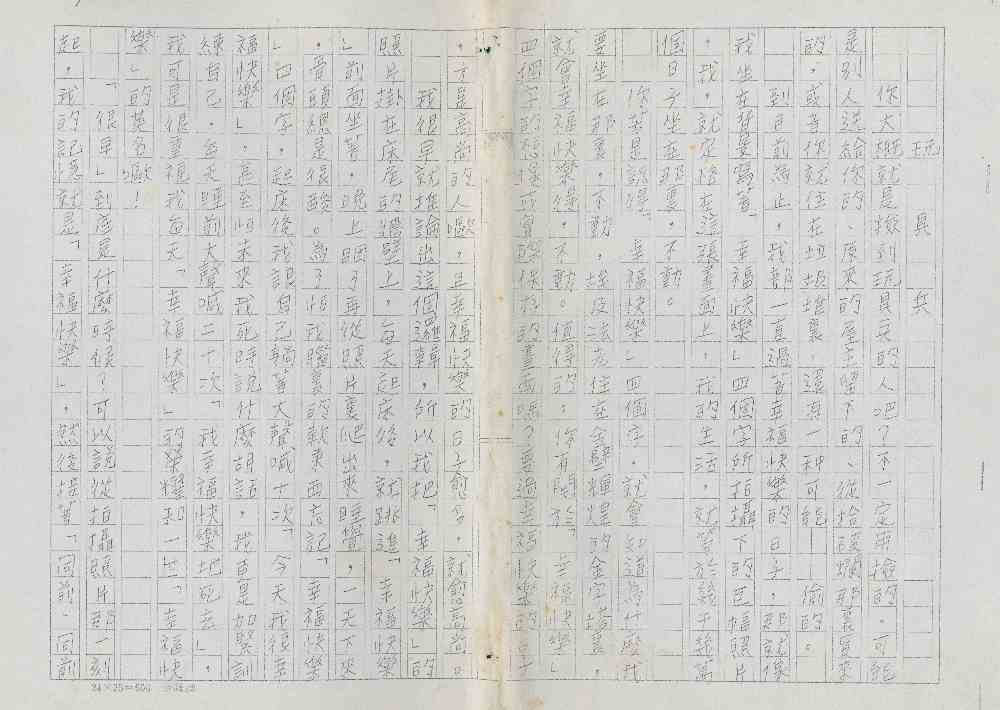 玩具兵
你大概就是撿到玩具兵的人吧?不一定用撿的。可能
是別人送給你的、原來的屋主留下的、從撿破爛那裏買來
的。或者你就住在垃圾堆裏。還有一種可能——偷的。
到目前為止。我都一直過著幸福快樂的日子。那就像
我坐在背景寫著「幸福快樂」四個字所拍攝下的巨幅照片
。我。就定格在這張畫面上。我的生活。就等於該千篇萬
個日子坐在那裏。不動。
你若是說得「幸福快樂」四個字。就會知道為什麼我
要坐在那裏。不動。埃及法老住在金碧輝煌的金字塔裏。
就會幸福快樂得。不動。值得的。你有關於「幸福快樂」
四個字的想像或實際保存的畫面嗎?要過幸福快樂的日子
。才是高尚的人喔。且幸福快樂的日子愈多。就愈高尚。
我很早就推論出這個邏輯。所以我把「幸福快樂」的
照片掛在床尾的牆壁上。每天起床後。就跳進「幸福快樂
」前面坐著。晚上睏了再從照片裏爬出來睡覺。一天下來
。骨頭總是很酸。為了怕我腦裏的軟東西忘記「幸福快樂
」四個字。起床後我跟自己躺著大聲喊十次「今天我很幸
福快樂」。甚至怕未來我死時說什麼胡話。我更是加緊訓
練自己。每天睡前大聲喊二十次「我幸福快樂地死去」。
我可是很重視我每天「幸福快樂」的榮耀和一世「幸福快
樂」的英名噢!
「很早」到底是什麼時候?可以說從拍攝照片那一刻
起。我的記憶就是「幸福快樂」。然後接著「同前、同前
24×25=600